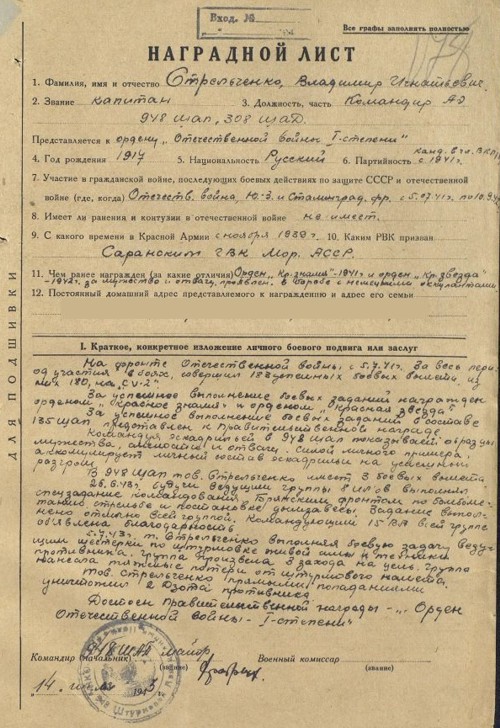 Вход. №
Все графы заполнить полностью
НАГРАДНОЙ ЛИСТ
1. Фамилия, имя и отчество Стрельченко, Владимир Игнатьевич.
2. Звание капитан 3. Должность, часть Командир АЭ
948 ШАП, 308 ШАД.
Представляется к ордену „Отечественной войны I-степени"
4. Год рождения 1917 5. Национальность Русский 6. Партийность канд. в чл. ВКП/б
с 1941г.
7. Участие в гражданской войне, последующих боевых действиях по защите СССР и отечественной
войне (где, когда) Отечеств. война, Ю-З. и Сталинград. фр. с 5.07.41г. по
8. Имеет ли ранения и контузии в отечественной войне не имеет.
9. С какого времени в Красной Армии с ноября 1939г. 10. Каким РВК призван
Саранским ГВК Мор. АССР.
11. Чем ранее награжден (за какие отличия) Орден „Кр. знамя"-1941г и орден „Кр. звезда"
-1942г. за мужество и отвагу, проявлен. в борьбе с немецкими оккупантами.
12. Постоянный домашний адрес представляемого к награждению и адрес его семьи
ДЛЯ ПОДШИВКИ
I. Краткое, конкретное изложение личного боевого подвига или заслуг
На фронте Отечественной войны с 5.7.41г. За весь пери-
од участия в боях, совершил 183 успешных боевых вылета, из
них 180, на „СУ-2".
За успешное выполнение боевых заданий награжден
орденом „Красное знамя" и орденом „Красная звезда"
За успешное выполнение боевых заданий в составе
135 ШАП представлен к правительственной награде
Командуя эскадрильей в 948 ШАП показывает образцы
мужества, и отваги. Силой личного примера,
личный состав эскадрильи на успешный
разгром
В 948 ШАП тов. Стрельченко имеет 3 боевых вылета.
26.6.43г. будучи ведущим группы 8 Илов выполнил
спецзадание командования Брянским фронтом по
стрельбе и постановке дымзавесы. Задание выпол-
нено отлично всей группой. Командующий 15 ВА всей группе
объявлена благодарность.
5.7.43г. т. Стрельченко выполняя боевую задачу веду-
щим шестерки по штурмовке живой силы и техники
противника. Группа произвела 3 захода на цель. Группа
нанесла тяжелые потери от штурмового налета.
тов. Стрельченко прямыми попаданиями
уничтожил 2 Дзота противника
Достоен правительственной награды - „Орден
Отечественной войны - I-степени"
948 ШАП майор
Командир (начальник) Военный комиссар
(звание) (звание)
14. 1943